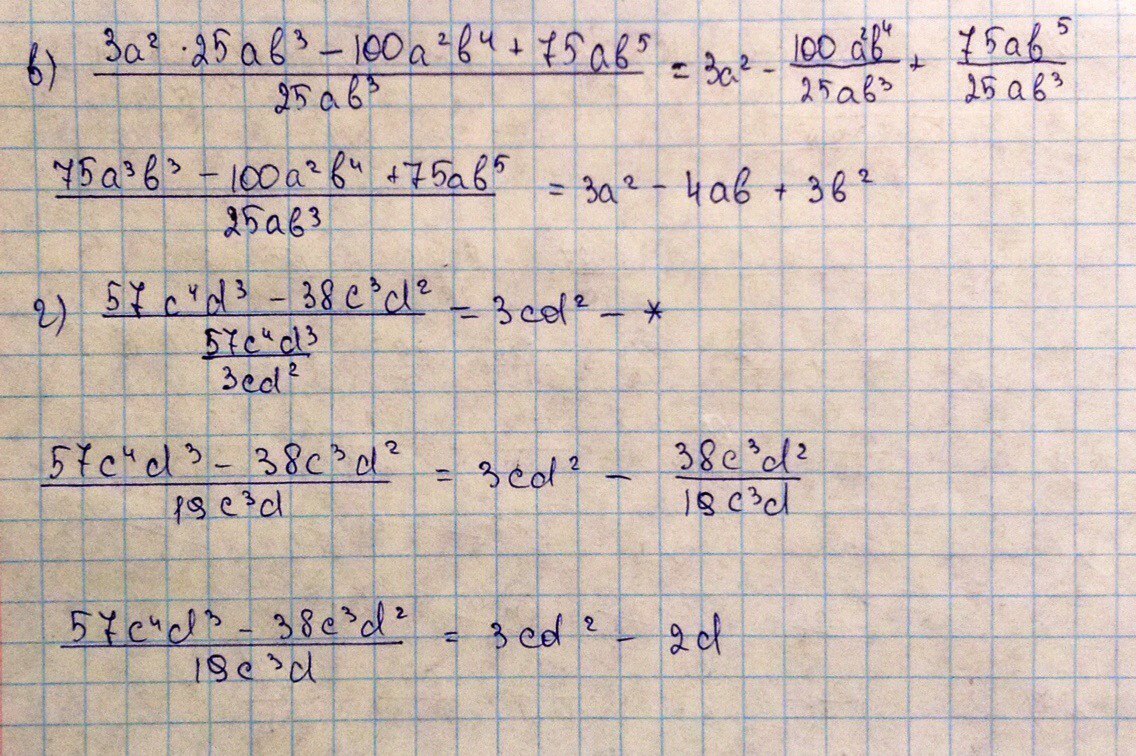 в) (3a² · 25ab³ − 100a²b⁴ + 75ab⁵) / (25ab³) = 3a² − (100a²b⁴) / (25ab³) + (75ab⁵) / (25ab³)
(75a³b³ − 100a²b⁴ + 75ab⁵) / (25ab³) = 3a² − 4ab + 3b²
г) (57c⁴d³ − 38c³d²) / ((57c⁴d³) / (3cd²)) = 3cd² − *
(57c⁴d³ − 38c³d²) / (19c³d) = 3cd² − (38c³d²) / (19c³d)
(57c⁴d³ − 38c³d²) / (19c³d) = 3cd² − 2d